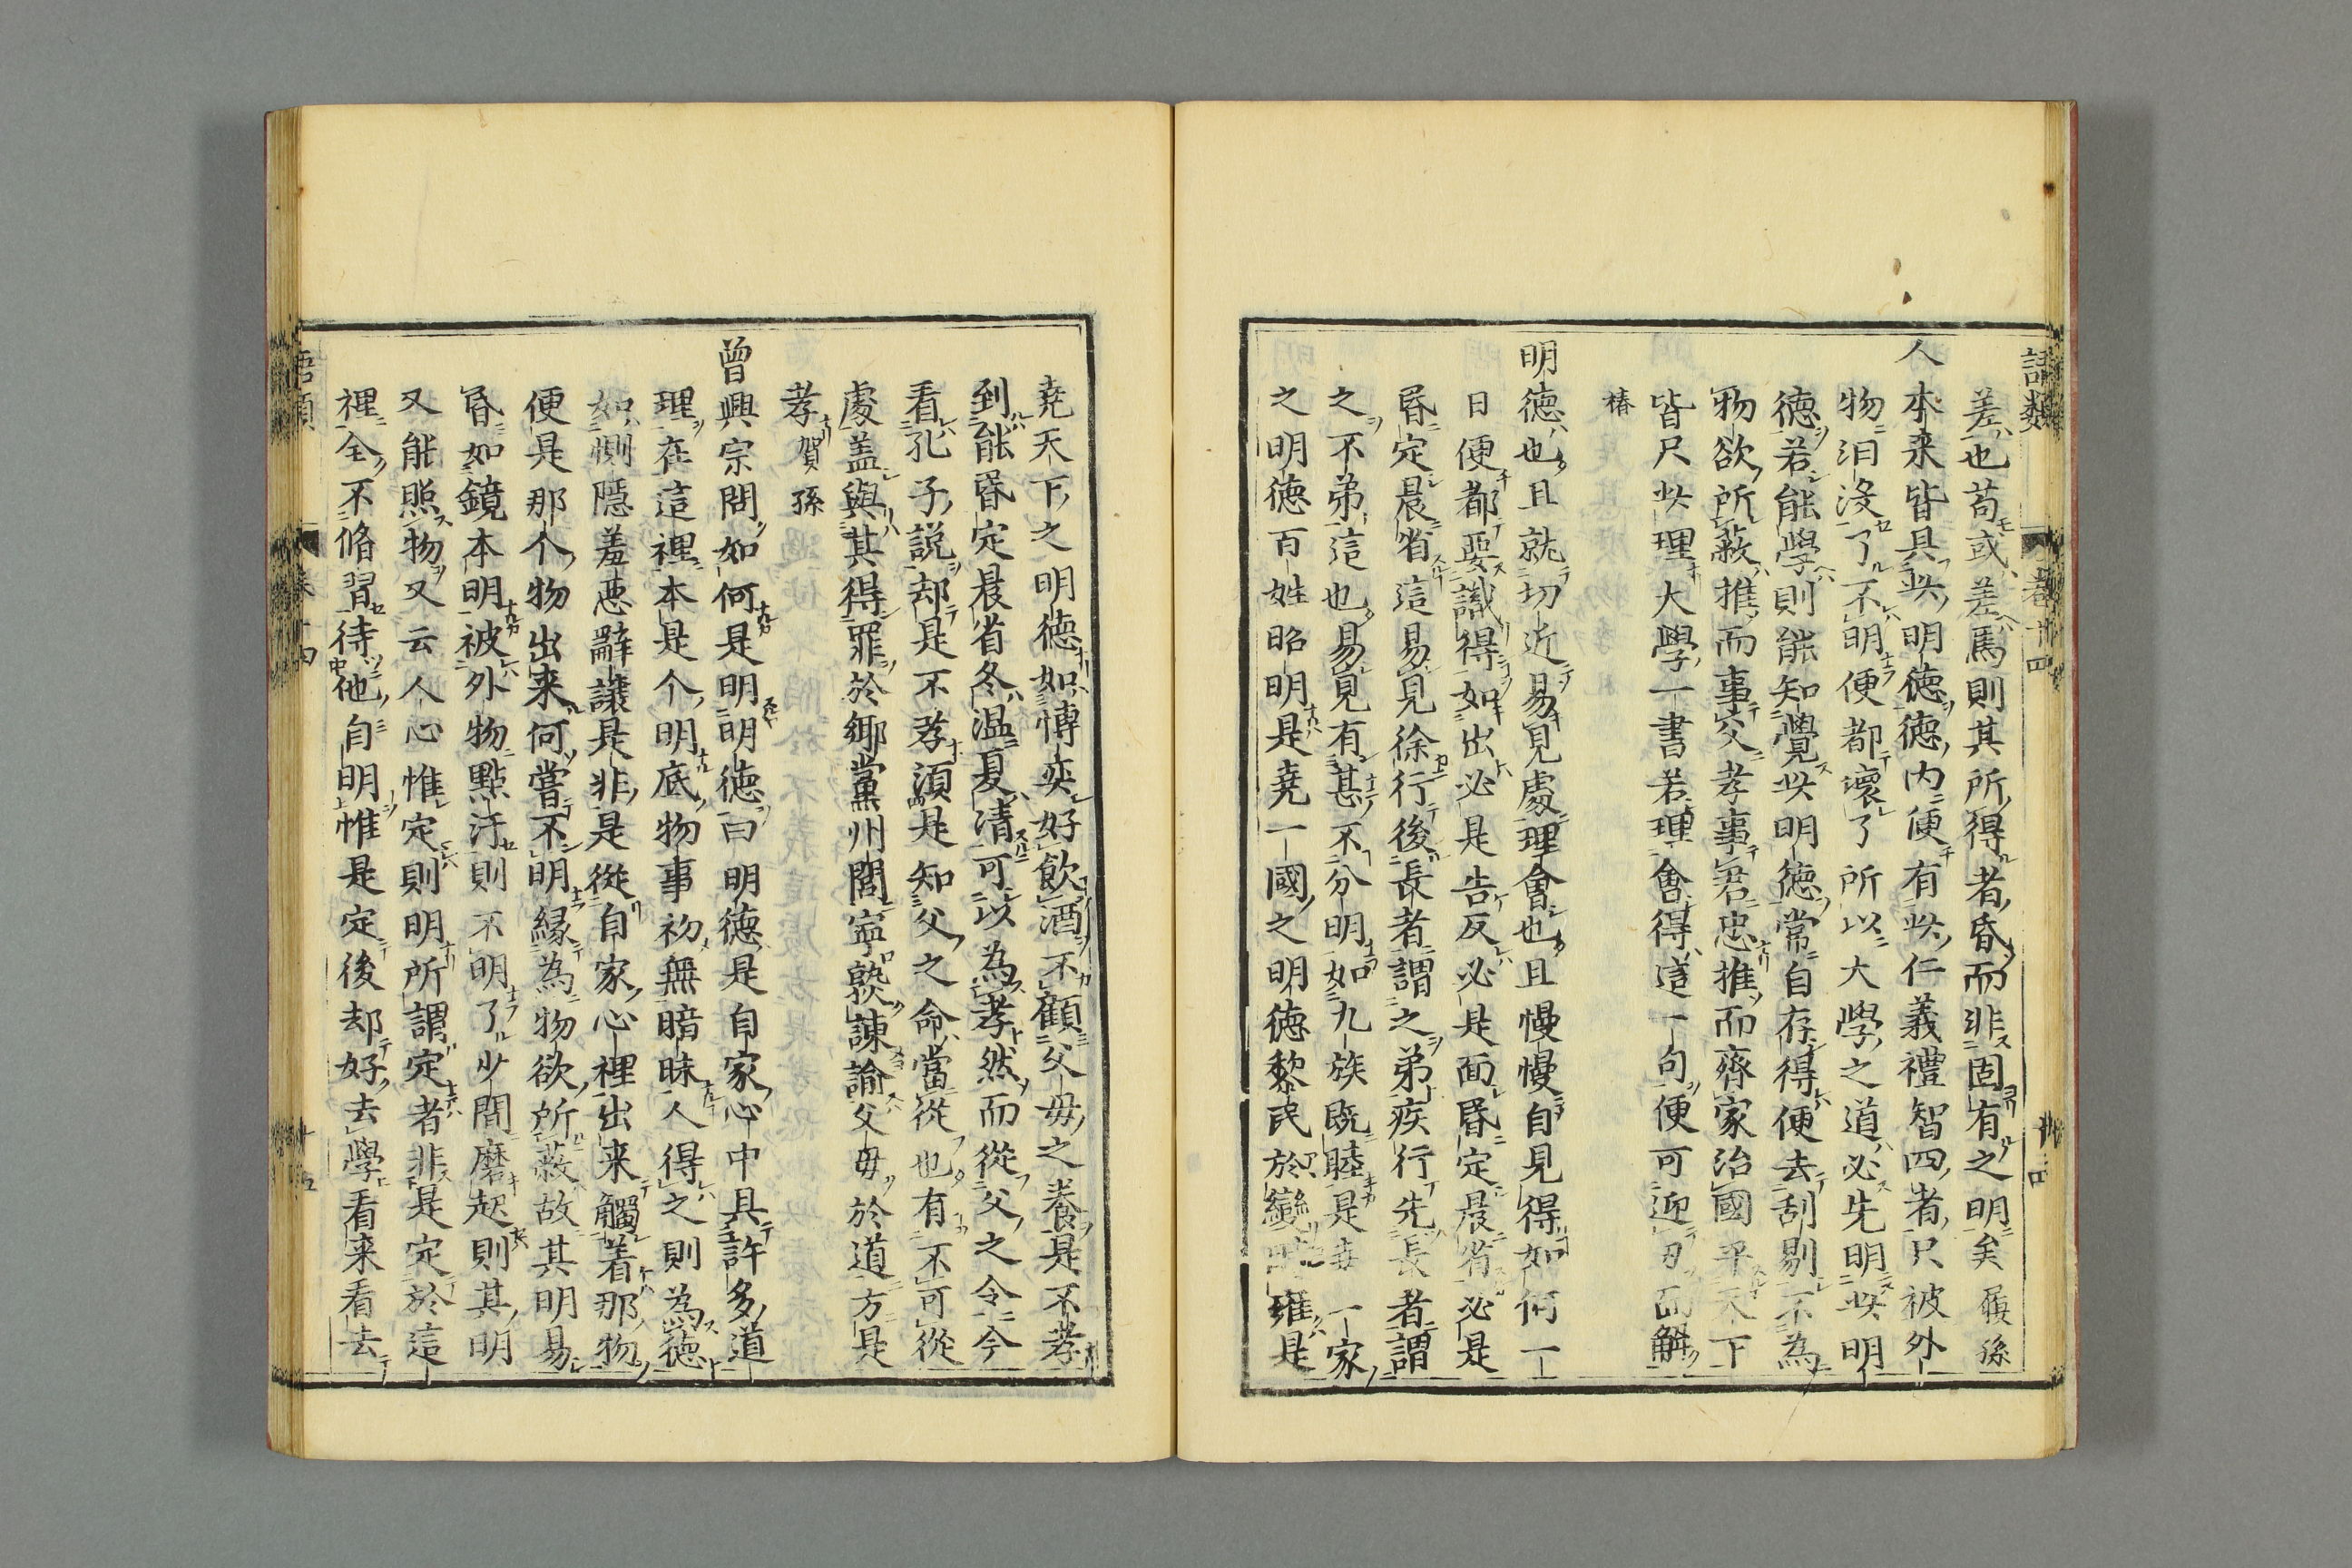 語類　卷十四　十四
差也苟或差焉則其所得者昏而非固有之明矣履孫
人本来皆具此明德德内便有此仁義禮智四者只被外
物汩没了不明便都壞了所以大學之道必先明此明
德若能學則能知覺此明德常自存得便去刮剔不為
物欲所蔽推而事父孝事君忠推而齊家治國平天下
皆只此理大學一書若理會得這一句便可迎刃而解
椿
明德也且就切近易見處理會也且慢慢自見得如何一
日便都要識得如出必是告反必是面昏定晨省必是
昏定晨省這易見徐行後長者謂之弟疾行先長者謂
之不弟這也易見有甚不分明如九族既睦是堯一家
之明德百姓昭明是堯一國之明德黎民於變時雍是
堯天下之明德如博奕好飲酒不顧父母之養是不孝
到能昏定晨省冬温夏凊可以為孝然而從父之令今
看孔子説却是不孝須是知父之命當從也有不可從
處盖與其得罪於鄉黨州閭寧熟諫諭父母於道方是
孝賀孫
曾興宗問如何是明明德曰明德是自家心中具許多道
理在這裡本是个明底物事初無暗昧人得之則為德
如惻隱羞惡辭讓是非是從自家心裡出来觸着那物
便是那个物出来何嘗不明緣為物欲所蔽故其明易
昏如鏡本明被外物點汙則不明了少間磨起則其明
又能照物又云人心惟定則明所謂定者非是定於這
裡全不脩習待他自明惟是定後却好去學看来看去
語類　十五